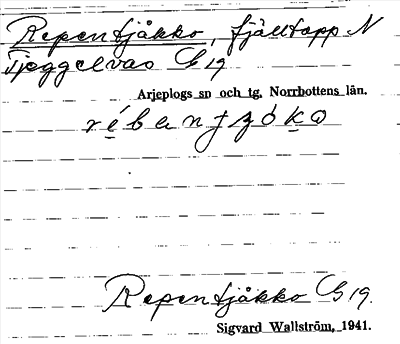 Repentjåkko, fjälltopp N
Tjeggelvas G 19
Arjeplogs sn och tg. Norrbottens län.
Repentjåkko G 19.
Sigvard Wallström, 1941.